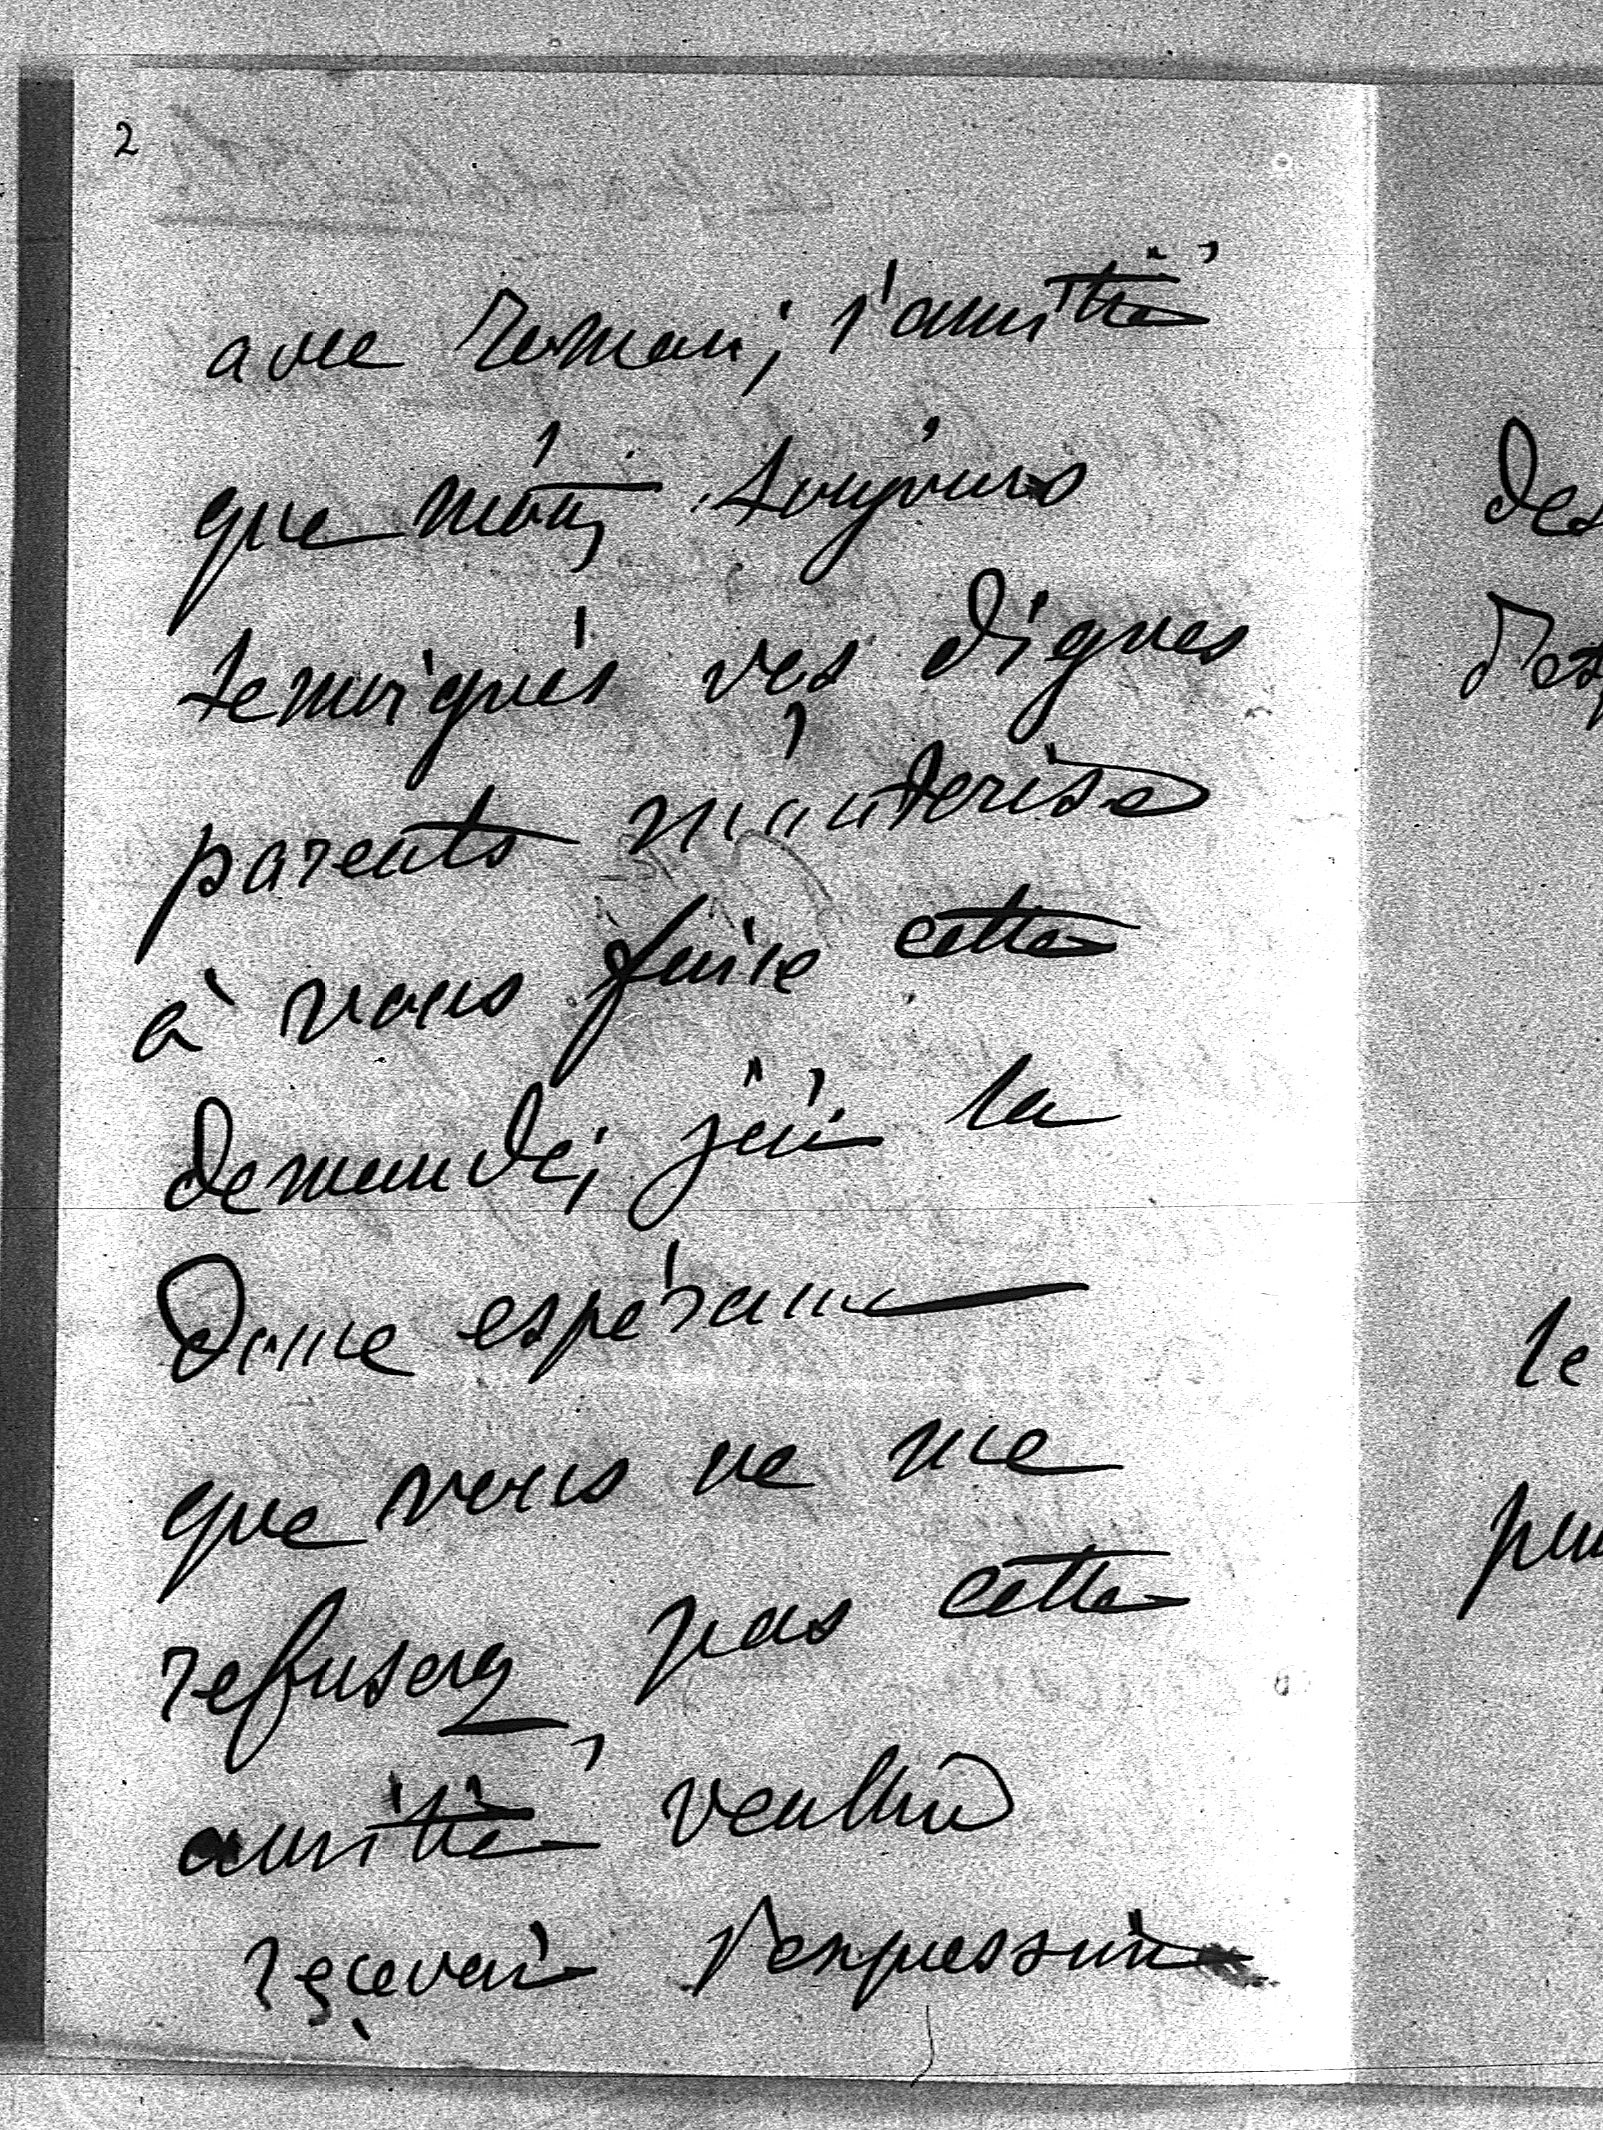 2
avec Roman; l'amitié
que m'ont toujours
temoignés vos dignes
parents m'autorise
à vous faire cette
demande; j'ai la
douce espérance
que vous ne me
refuserez pas cette
amitié veuillez
reçevoir l'expression
des
le